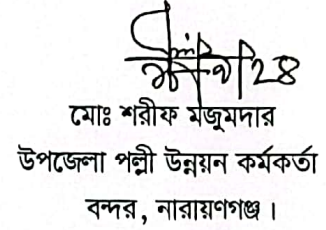 মোঃ শরীফ মজুমদার
উপজেলা পল্লী উন্নয়ন কর্মকর্তা
বন্দর, নারায়ণগঞ্জ।